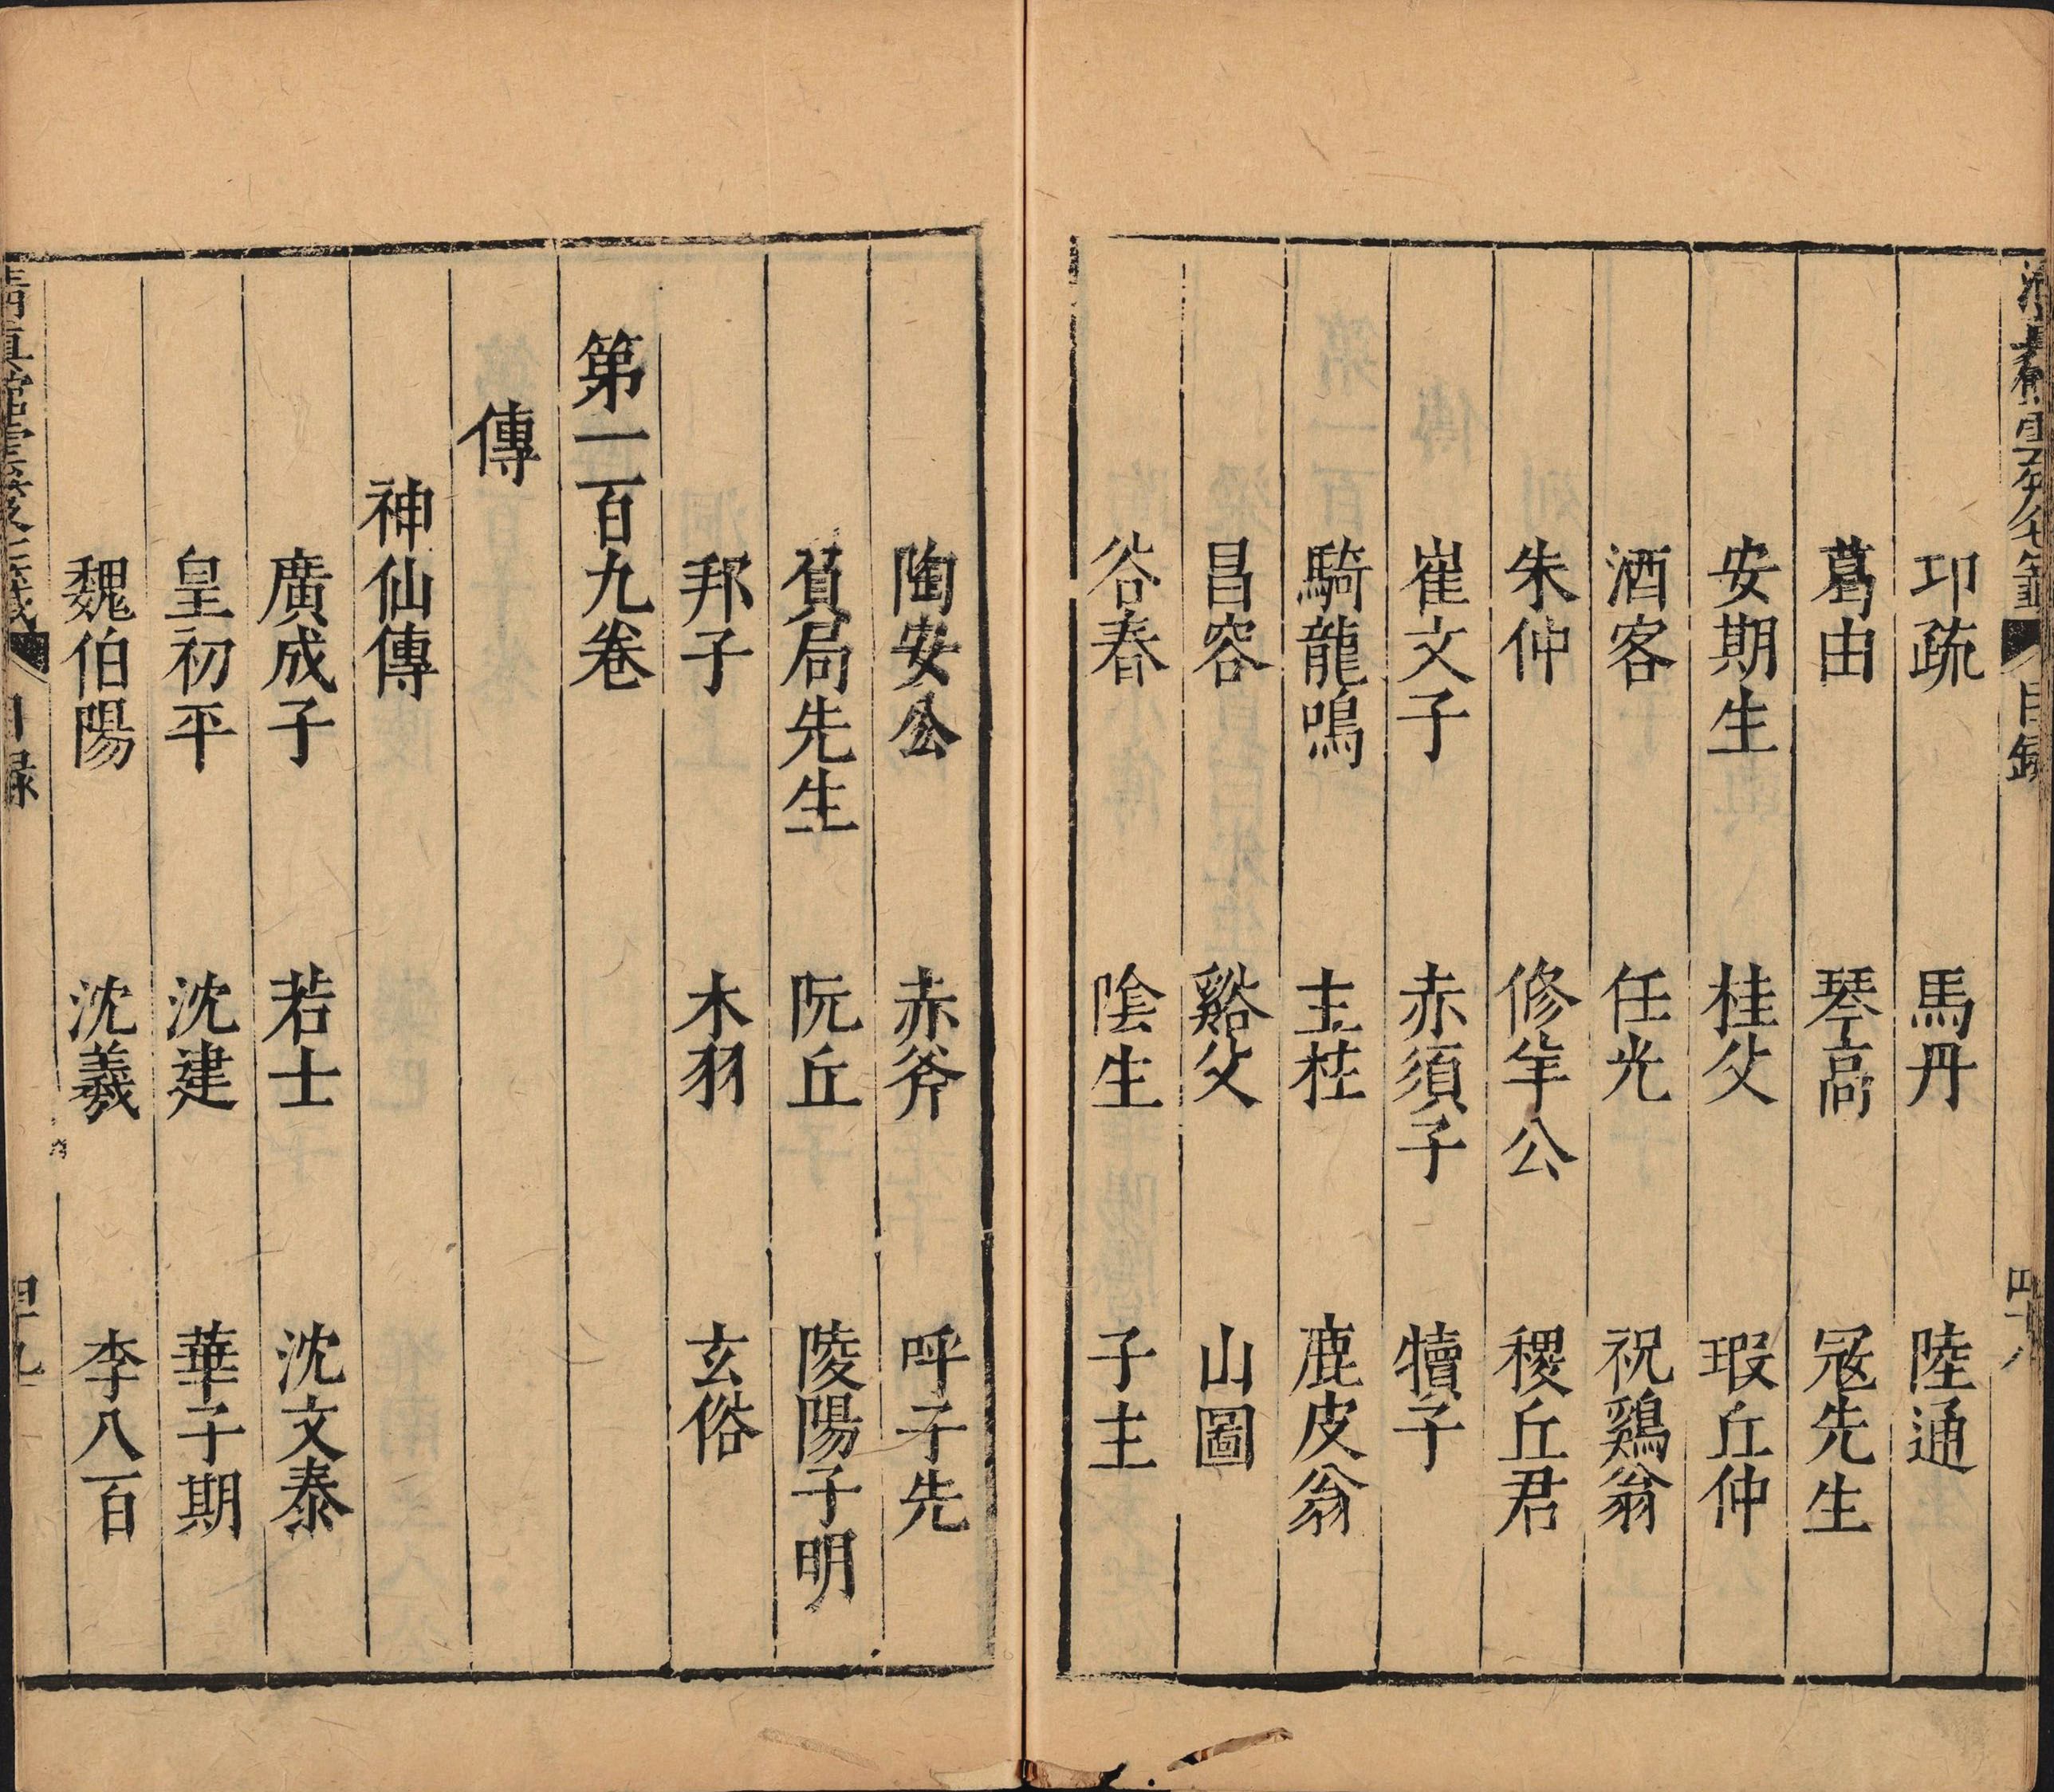 卭疏　馬丹　陸通
葛由　琴高　冦先生
安期生　桂父　瑕丘仲
酒客　任光　祝鷄翁
朱仲　修羊公　稷丘君
崔文子　赤須子　犢子
騎龍鳴　主柱　鹿皮翁
昌容　谿父　山圖
谷春　陰生　子主
陶安公　赤斧　呼子先
負局先生　阮丘　陵陽子明
邦子　木羽　玄俗
第一百九卷
傳
神仙傳
廣成子　若士　沈文泰
皇初平　沈建　華子期
魏伯陽　沈羲　李八百
清真館雲笈七籤　目録　四十九